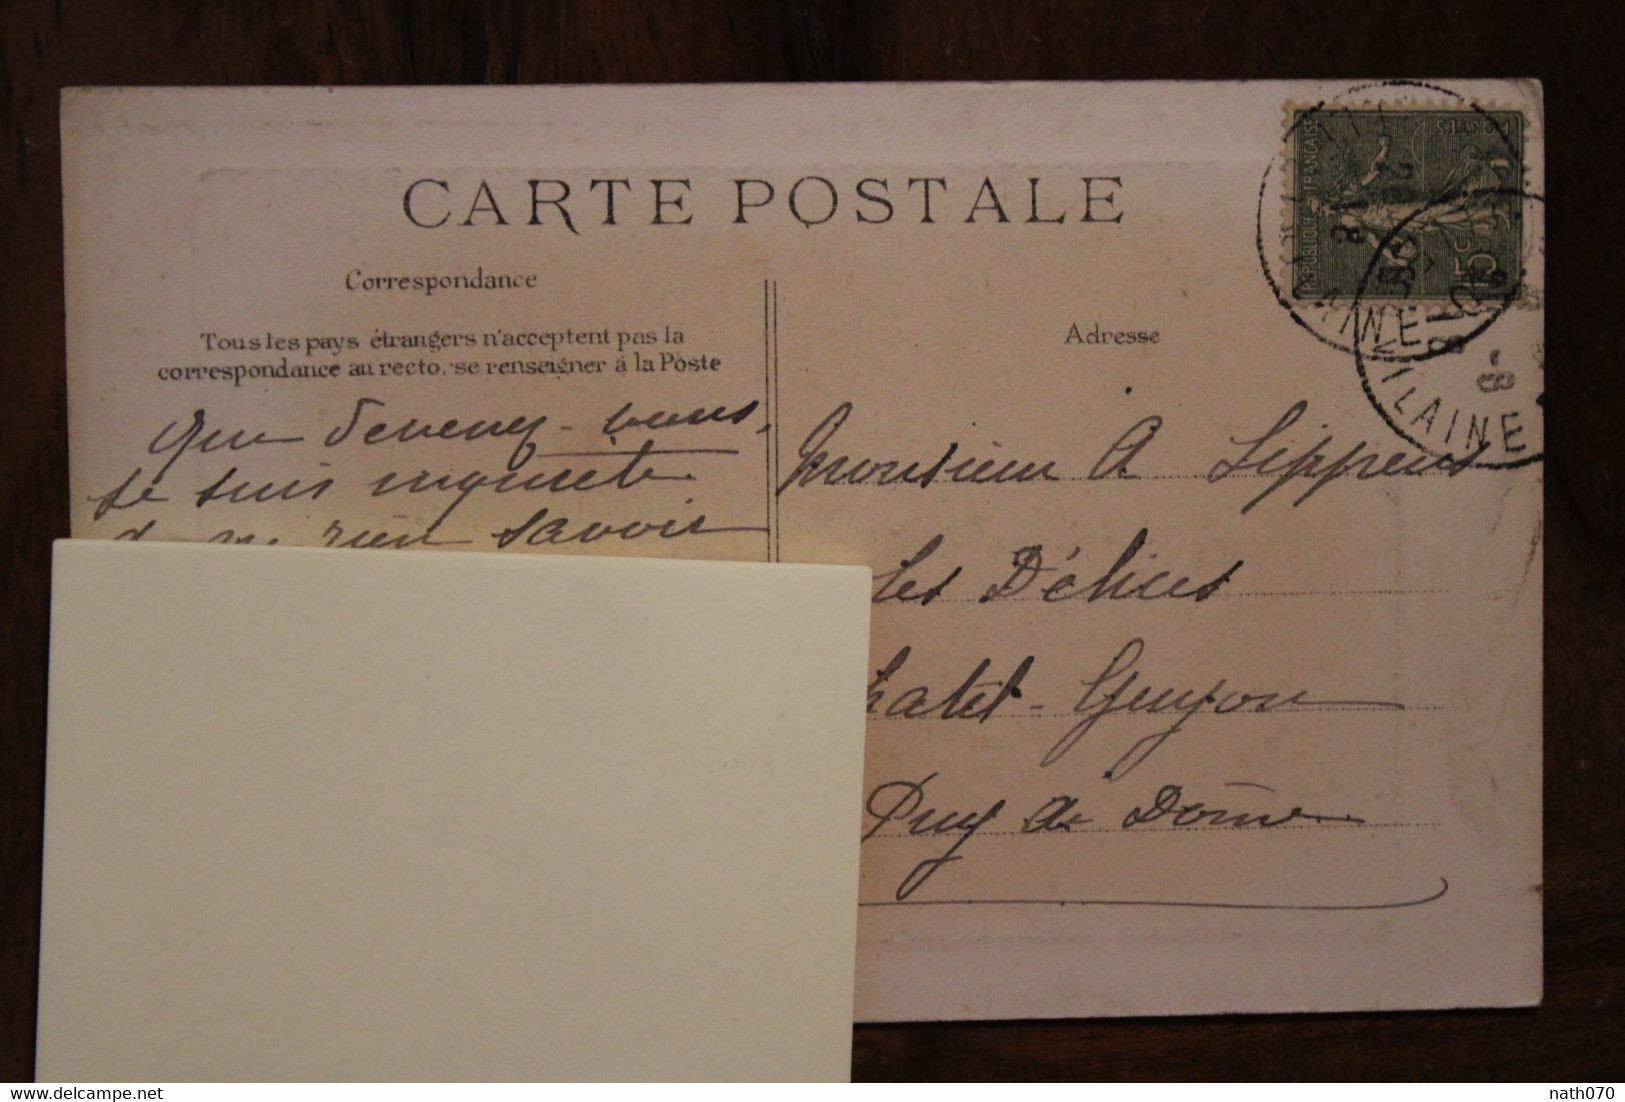 CARTE POSTALE
Correspondance
Tous les pays étrangers n'acceptent pas la
correspondance au recto, se renseigner à la Poste
Adresse
REPUBLIQUE FRANÇAISE
POSTES
15c
VILAINE
Que devenez-vous,
je suis inquiète
de ne rien savoir
Monsieur A Lippens
Les Délices
hatel-Guyon
Puy de Dôme
nath070